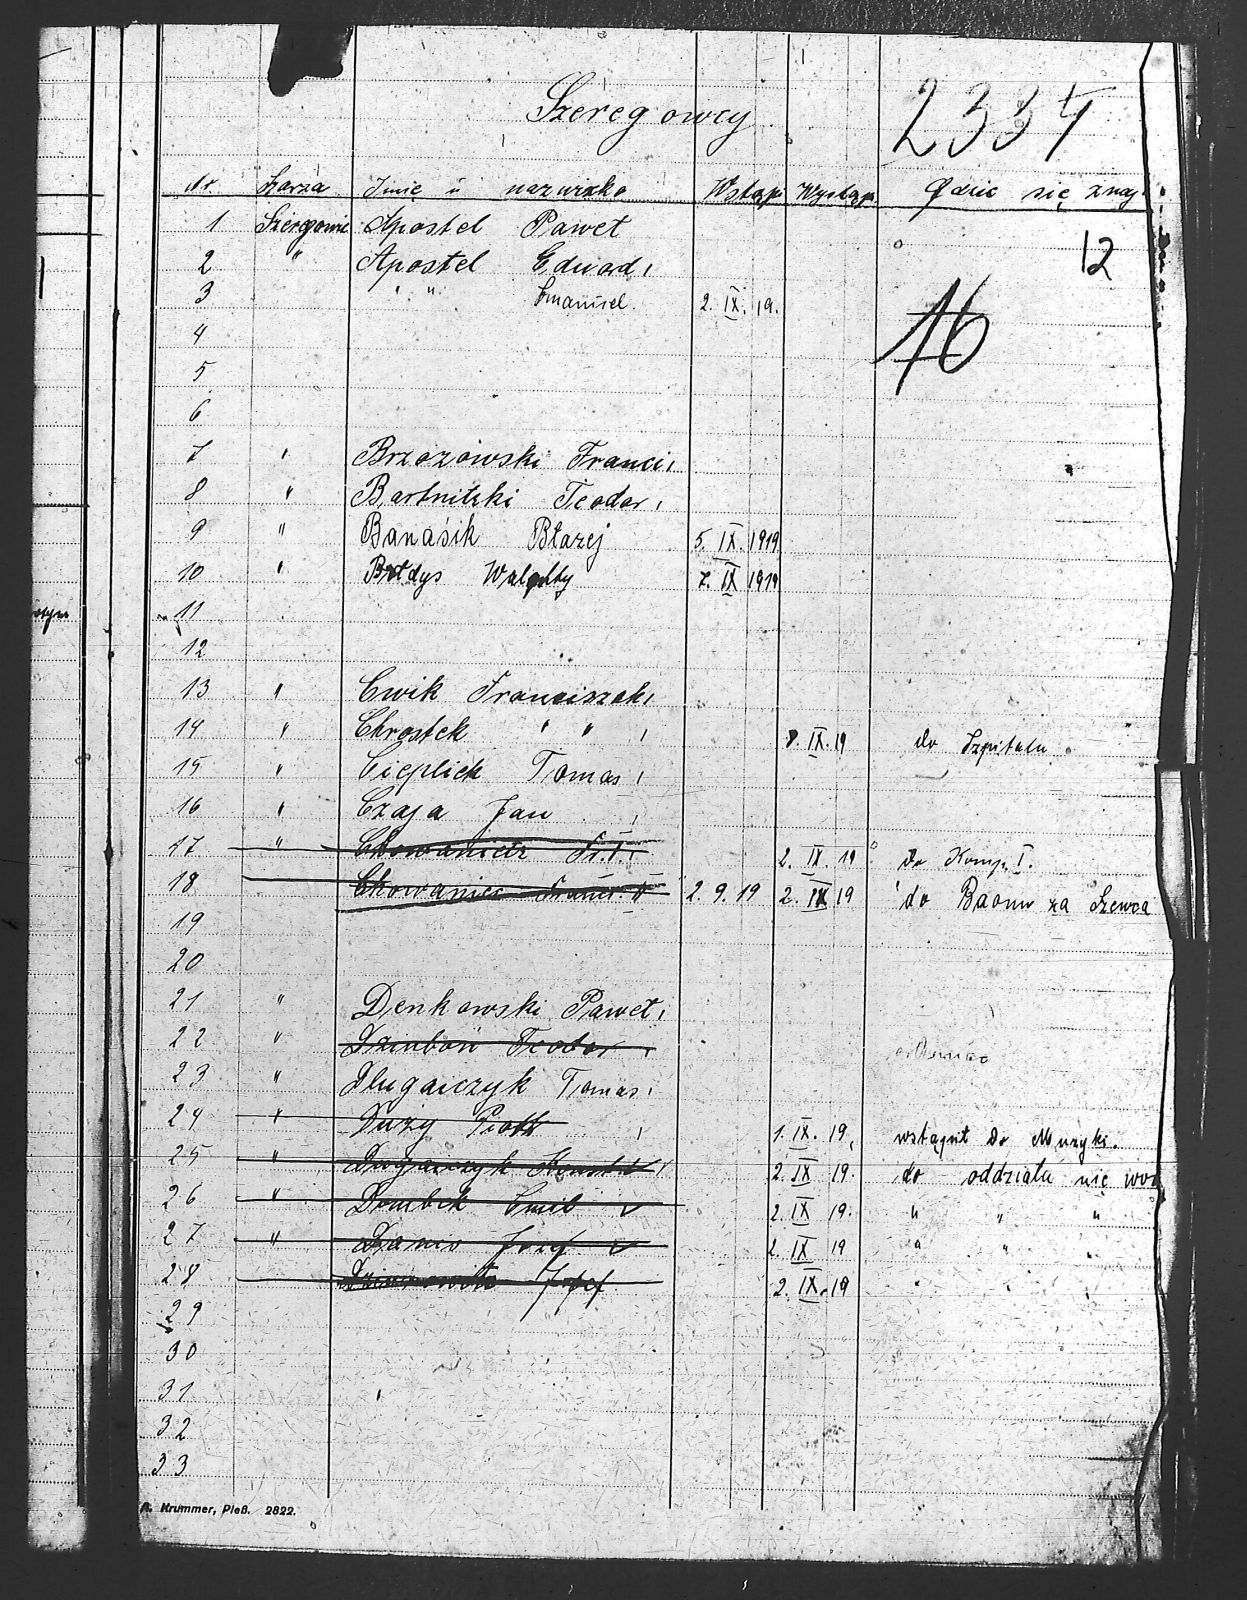 Szeregowcy
2334
Nr Szarza Imię i nazwisko Wstąp. Wystąp. Gdzie się znaj
1 Szeregowiec Apostel Paweł
12
2 " Apostel Edward
3 " " Emanuel. 2. IX. 19.
16
4
5
6
7 " Brzozowski Franci
8 " Bartnitzki Teodor
9 " Banásik Błazej 5. IX. 1919
10 " dys 7. IX 1919
11
12
13 " Cwik Franciszek
14 " Chrostek " " IX. 19 do Szpitalu
15 " Cieplick Tomas
16 " Czaja Jan
17 " Chowaniecz Fr. I. 2. IX. 19 do Komp. I.
18 Chowaniec Franc. II 2. 9. 19 2. IX 19 do Baonu za Szewca
19
20
21 " Denkowski Paweł
22 " Teodor
23 " Dlugaiczyk Tomas
24 " Duzy Piotr 1. IX. 19. wstąpił do Muzyki.
25 " Dlugaiczyk 2. IX 19. do oddziału
26 " Dombek Emil 2. IX 19. " " "
27 " Józef 2. IX 19 " " "
28 Józef 2. IX. 19 " " "
29
30
31
32
33
R. Krummer, Pleß. 2822.